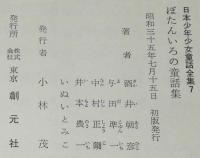 日本少年少女童話全集7
ぼたんいろの童話集
昭和三十五年七月十五日　初版発行
著者　酒井朝彦
与田凖一
中村正爾
いぬいとみこ
井本貴一
発行者　小林茂
発行所　株式会社　東京　創元社